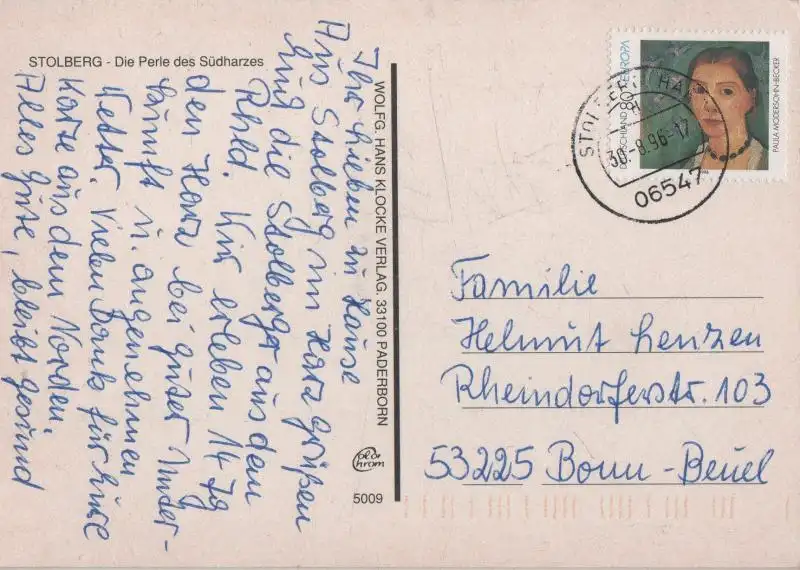 STOLBERG - Die Perle des Südharzes
Ihr Lieben zu Hause
Aus Stolberg im Harz grüßen
Euch die Stolberger aus dem
Rhld. Wir erleben 14 Tg
den Harz bei guter Unter-
kunft u. angenehmen
Wetter. Vielen Dank für Eure
Karte aus dem Norden.
Alles Gute, bleibt gesund
WOLFG. HANS KLOCKE VERLAG, 33100 PADERBORN
color
chrom
5009
DEUTSCHLAND 80 EUROPA
PAULA MODERSOHN-BECKER
STOLBERG (HARZ)
30.-8.96-17
06547
Familie
Helmut Lenzen
Rheindorferstr. 103
53225 Bonn-Beuel